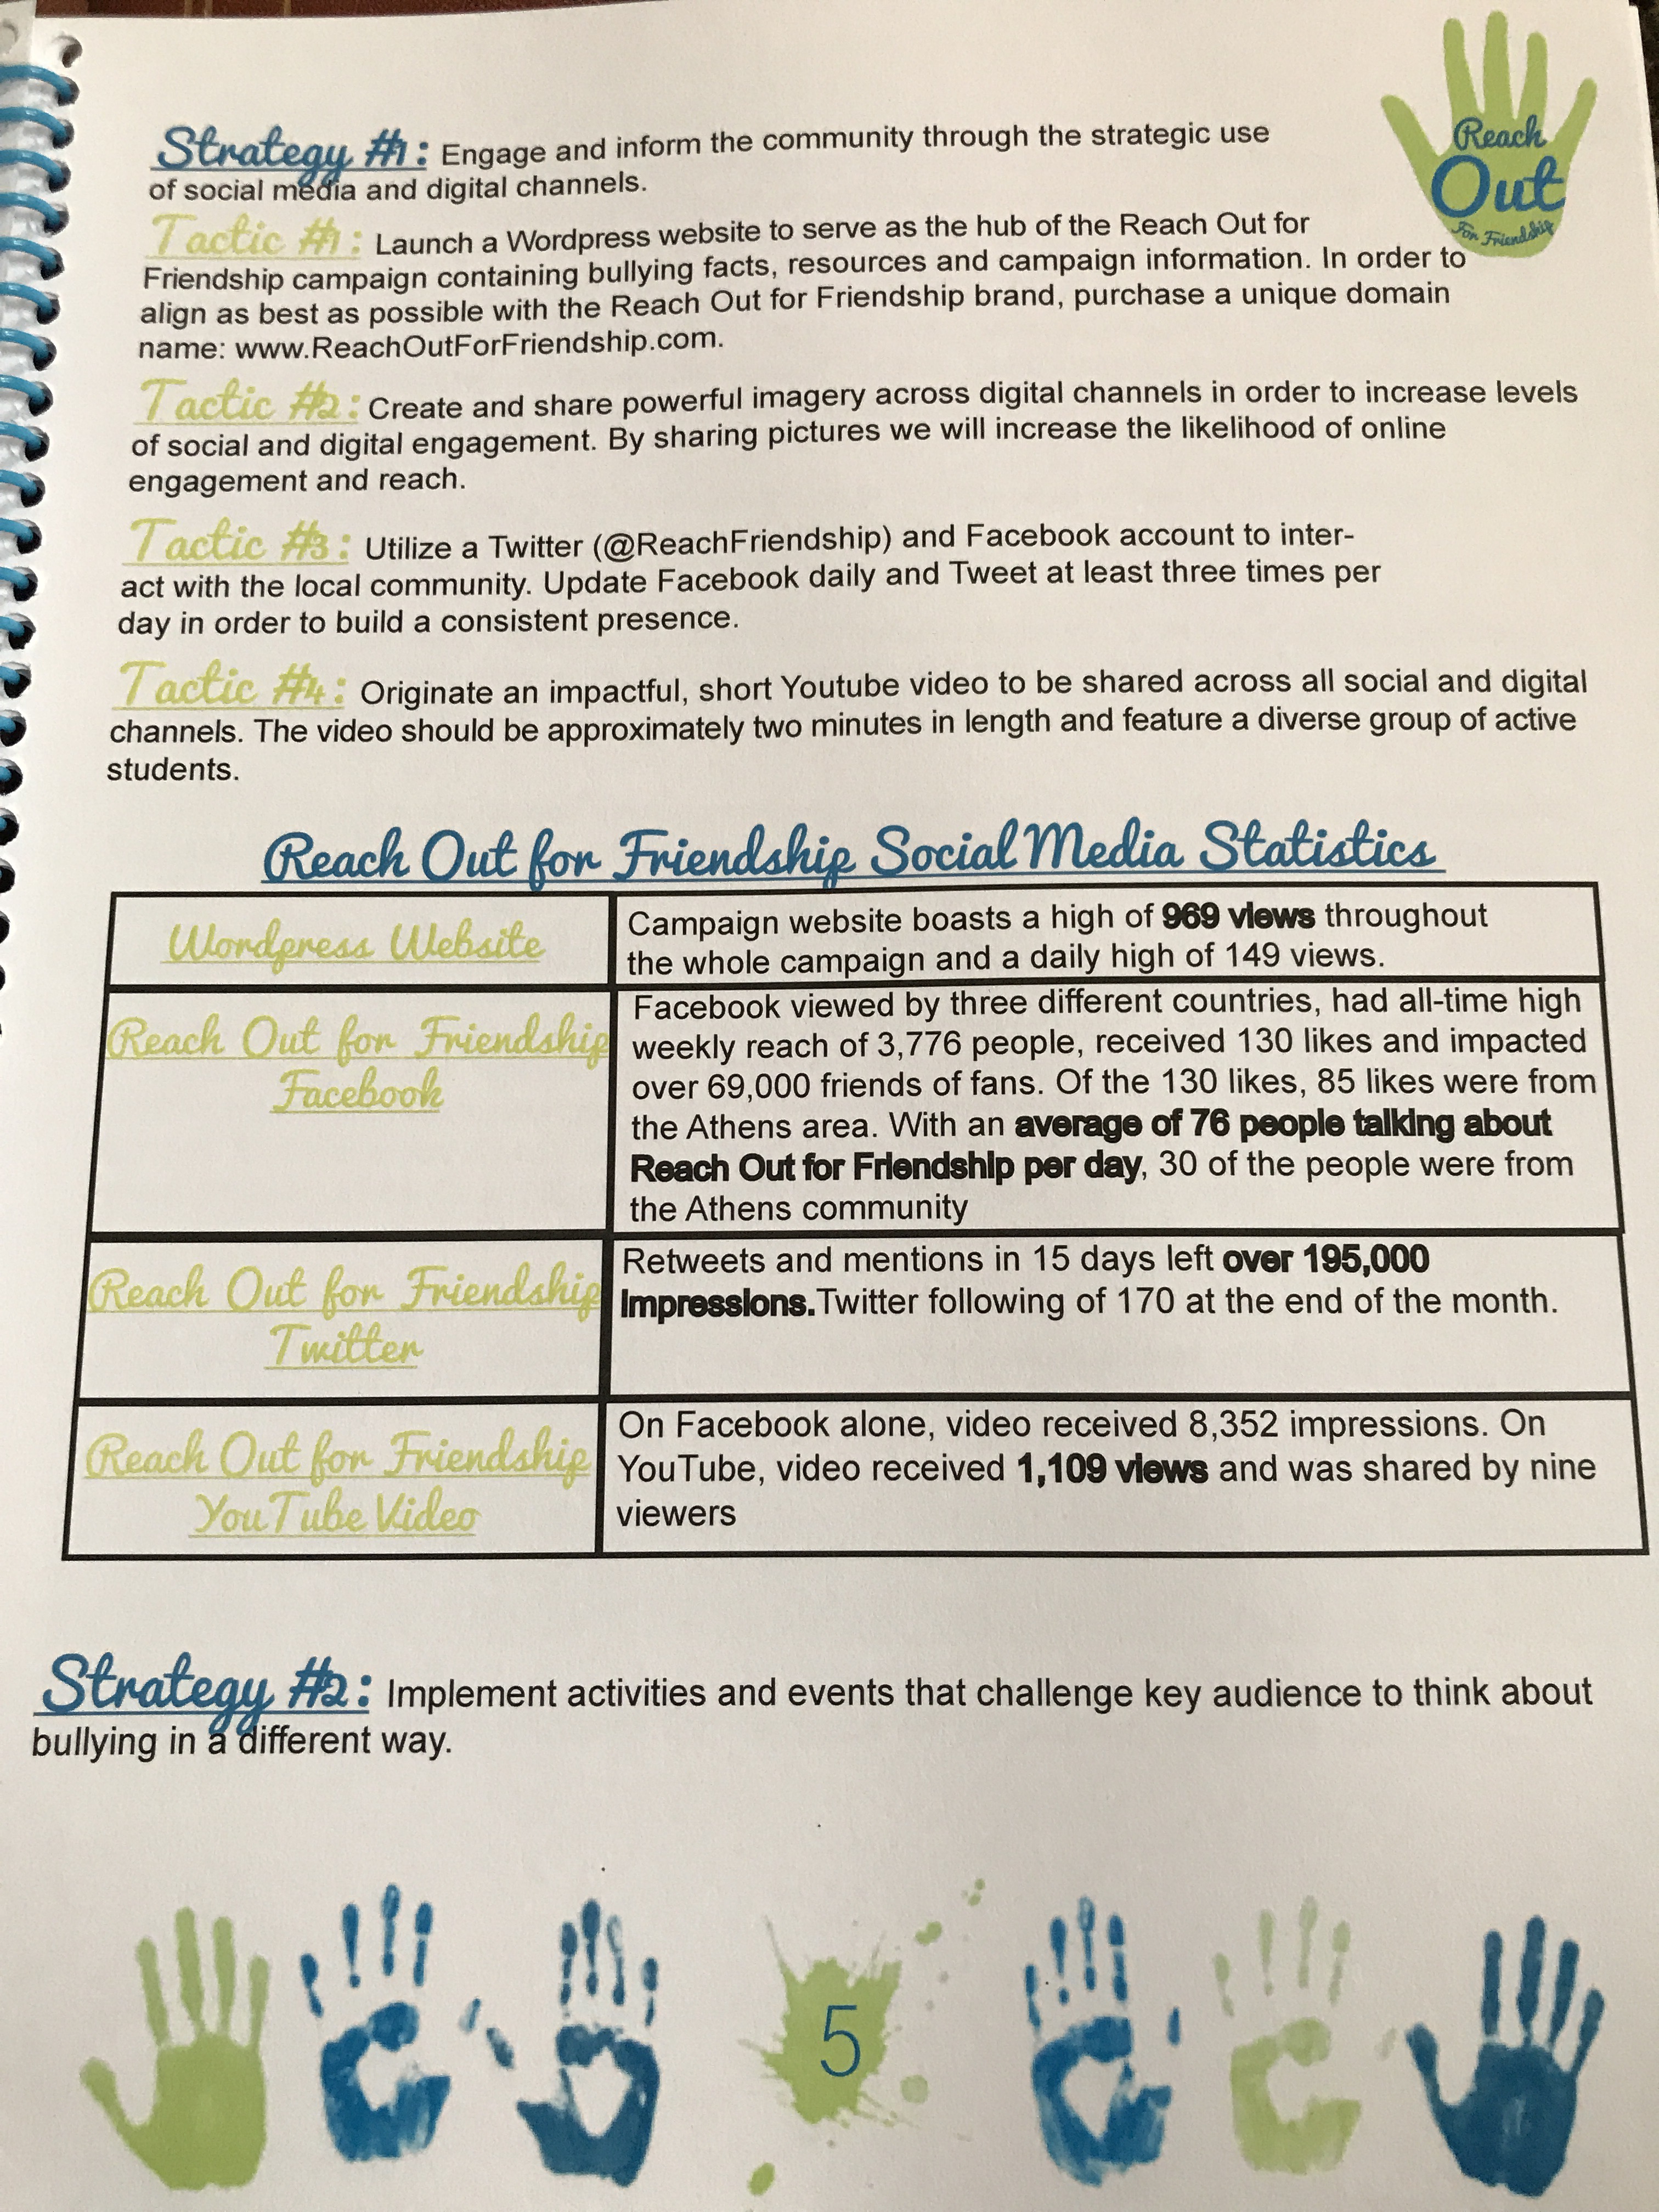 Reach
Out
For Friendship
Strategy #1: Engage and inform the community through the strategic use
of social media and digital channels.
Tactic #1: Launch a Wordpress website to serve as the hub of the Reach Out for
Friendship campaign containing bullying facts, resources and campaign information. In order to
align as best as possible with the Reach Out for Friendship brand, purchase a unique domain
name: www.ReachOutForFriendship.com.
Tactic #2: Create and share powerful imagery across digital channels in order to increase levels
of social and digital engagement. By sharing pictures we will increase the likelihood of online
engagement and reach.
Tactic #3: Utilize a Twitter (@ReachFriendship) and Facebook account to inter-
act with the local community. Update Facebook daily and Tweet at least three times per
day in order to build a consistent presence.
Tactic #4: Originate an impactful, short Youtube video to be shared across all social and digital
channels. The video should be approximately two minutes in length and feature a diverse group of active
students.
Reach Out for Friendship Social Media Statistics
Wordpress Website
Campaign website boasts a high of 969 views throughout
the whole campaign and a daily high of 149 views.
Reach Out for Friendship
Facebook
Facebook viewed by three different countries, had all-time high
weekly reach of 3,776 people, received 130 likes and impacted
over 69,000 friends of fans. Of the 130 likes, 85 likes were from
the Athens area. With an average of 76 people talking about
Reach Out for Friendship per day, 30 of the people were from
the Athens community
Reach Out for Friendship
Twitter
Retweets and mentions in 15 days left over 195,000
impressions.Twitter following of 170 at the end of the month.
Reach Out for Friendship
YouTube Video
On Facebook alone, video received 8,352 impressions. On
YouTube, video received 1,109 views and was shared by nine
viewers
Strategy #2: Implement activities and events that challenge key audience to think about
bullying in a different way.
5